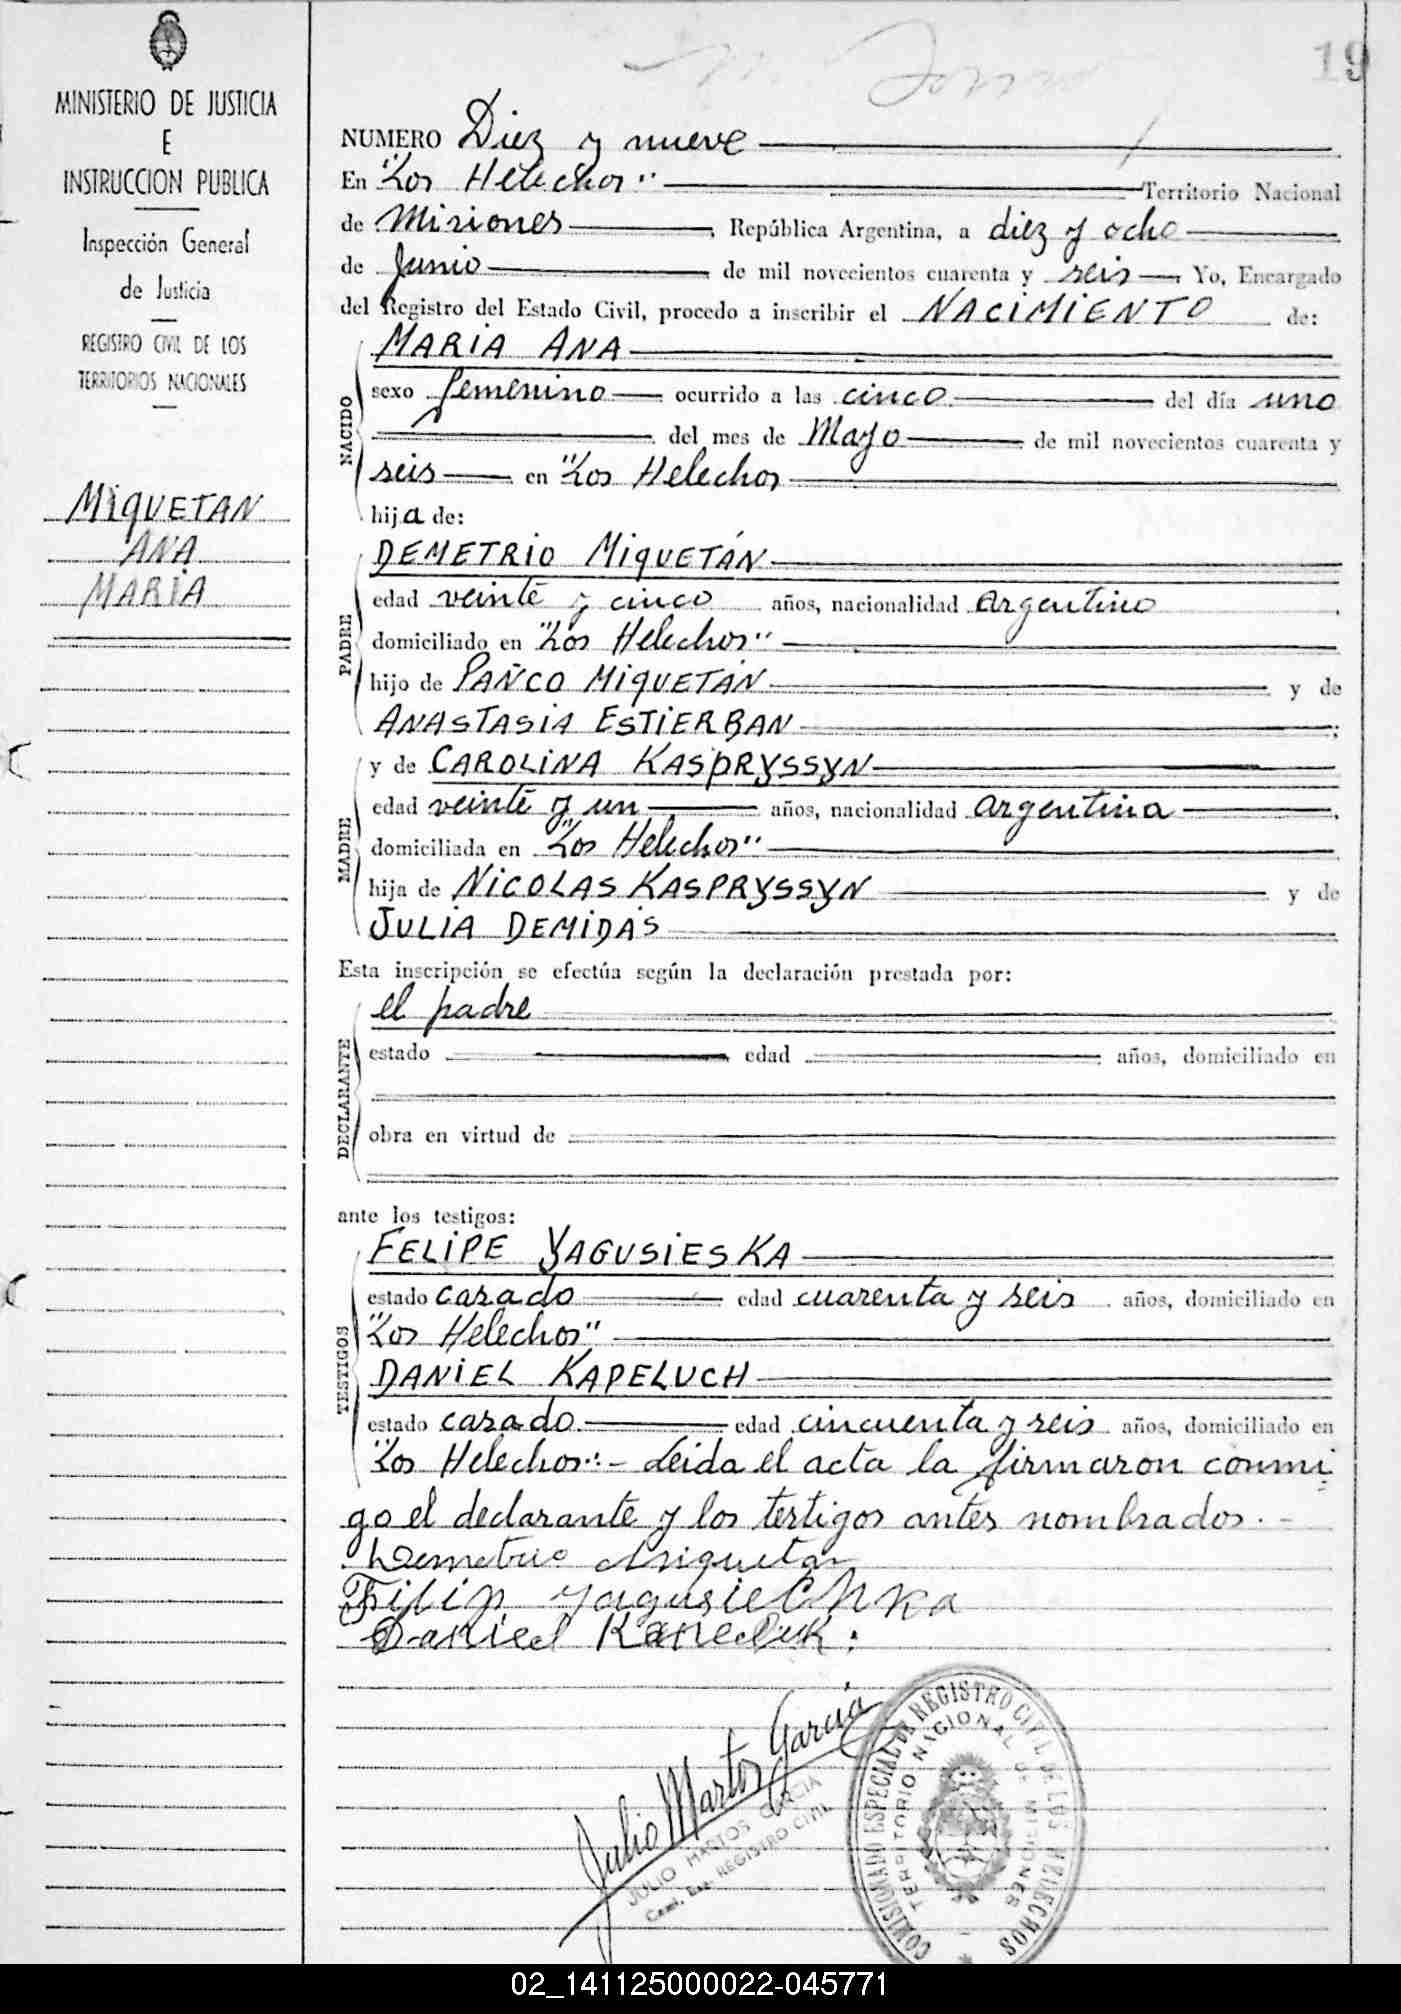 19
MINISTERIO DE JUSTICIA
E
INSTRUCCION PUBLICA
Inspección General
de Justicia
REGISTRO CIVIL DE LOS
TERRITORIOS NACIONALES
MIQUETAN
ANA
MARIA
NUMERO Diez y nueve
En "Los Helechos" Territorio Nacional
de Misiones, República Argentina, a diez y ocho
de Junio de mil novecientos cuarenta y seis Yo, Encargado
del Registro del Estado Civil, procedo a inscribir el NACIMIENTO de:
NACIDO
MARIA ANA
sexo femenino ocurrido a las cinco del día uno
del mes de Mayo de mil novecientos cuarenta y
seis en "Los Helechos
hija de:
PADRE
DEMETRIO MIQUETÁN
edad veinte y cinco años, nacionalidad Argentino
domiciliado en "Los Helechos"
hijo de PAÑCO MIQUETÁN y de
ANASTASIA ESTIERBAN
MADRE
y de CAROLINA KASPRYSSYN
edad veinte y un años, nacionalidad argentina
domiciliada en "Los Helechos"
hija de NICOLAS KASPRYSSYN y de
JULIA DEMIDAS
Esta inscripción se efectúa según la declaración prestada por:
DECLARANTE
el padre
estado edad años, domiciliado en
obra en virtud de
ante los testigos:
TESTIGOS
FELIPE YAGUSIESKA
estado casado edad cuarenta y seis años, domiciliado en
"Los Helechos"
DANIEL KAPELUCH
estado casado edad cincuenta y seis años, domiciliado en
"Los Helechos".- Leida el acta la firmaron conmi
go el declarante y los testigos antes nombrados.-
Demetrio Miquetan
Filip Yagusiechka
Daniel Kapeluk.
Julio Martos García
JULIO MARTOS GARCIA
Comi. Esp. REGISTRO CIVIL
COMISIONADO ESPECIAL DE REGISTRO CIVIL DE LOS HELECHOS
TERRITORIO NACIONAL DE MISIONES
02_141125000022-045771